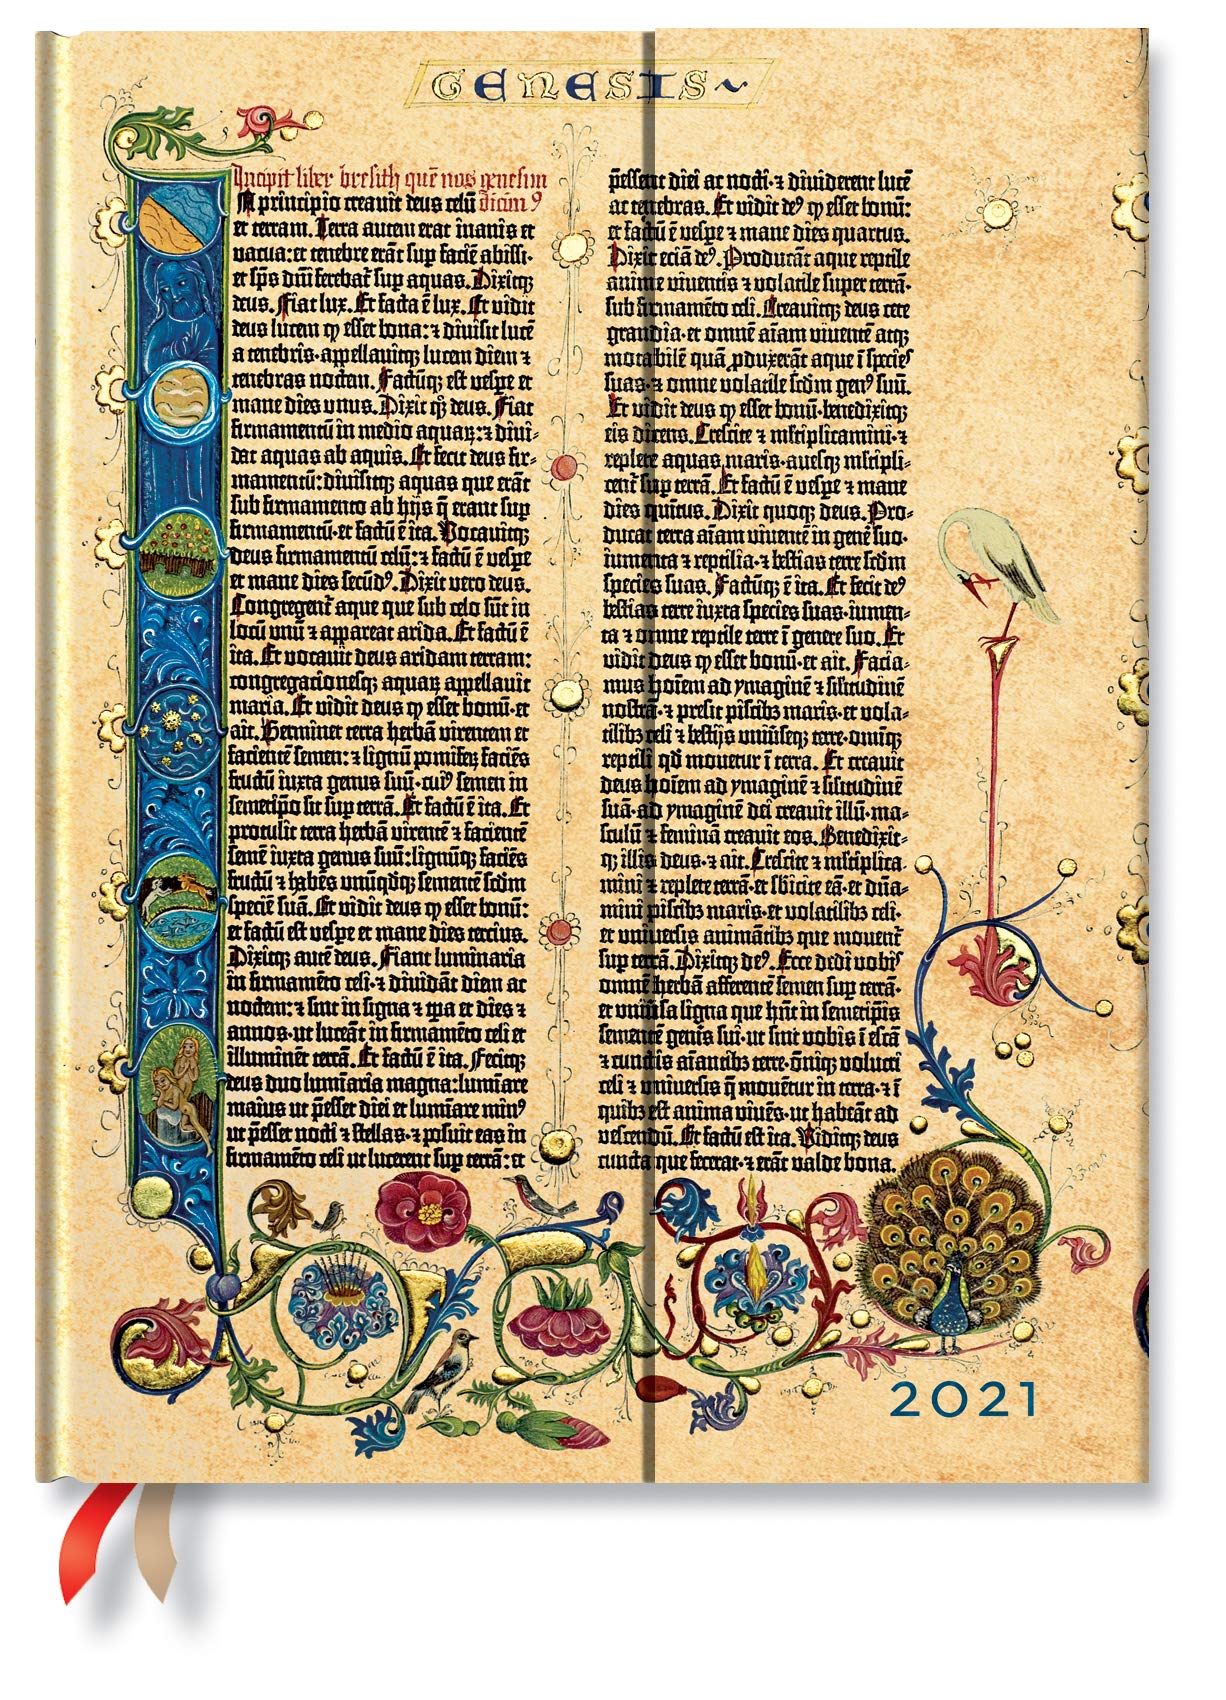 GENESIS~
Incipit liber bresith quē nos genesim
In principio creauit deus celū dicim⁹
et terram. Terra autem erat inanis et
vacua: et tenebre erāt sup faciē abissi·
et sp̄s dn̄i ferebat̄ sup aquas. Dixitqꝫ
deus. Fiat lux. Et facta ē lux. Et vidit
deus lucem ꝙ esset bona: ⁊ diuisit lucē
a tenebris·appellauitqꝫ lucem diem ⁊
tenebras noctem. Factūqꝫ est vespe et
mane dies vnus. Dixit qꝫ deus. Fiat
firmamentū in medio aquaꝝ: ⁊ diui-
dat aquas ab aquis. Et fecit deus fir-
mamentū: diuisitqꝫ aquas que erāt
sub firmamento ab hijs q̄ erant sup
firmamentū·et factū ē ita. Vocauitqꝫ
deus firmamentū celū: ⁊ factū ē vespe
et mane dies secūd⁹. Dixit vero deus.
Congregent̄ aque que sub celo sūt in
locū vnū ⁊ appareat arida. Et factū ē
ita. Et vocauit deus aridam terram:
congregacionesqꝫ aquaꝝ appellauit
maria. Et vidit deus ꝙ esset bonū·et
ait. Germinet terra herbā virentem et
facientē semen: ⁊ lignū pomiferꝝ faciēs
fructū iuxta genus suū·cui⁹ semen in
semetip̄o sit sup terrā. Et factū ē ita. Et
protulit terra herbā virentē ⁊ facientē
semē iuxta genus suū: lignūqꝫ faciēs
fructū ⁊ habēs vnūqdqꝫ sementē scdm
speciē suā. Et vidit deus ꝙ esset bonū:
et factū est vespe et mane dies tercius.
Dixitqꝫ autē deus. Fiant luminaria
in firmamēto celi·⁊ diuidāt diem ac
noctem: ⁊ sint in signa ⁊ tp̄a et dies ⁊
annos·ut luceāt in firmamēto celi et
illuminēt terrā. Et factū ē ita. Fecitqꝫ
deus duo luminaria magna: lumiāre
maius ut p̄esset diei et lumiāre min⁹
ut p̄esset nocti ⁊ stellas·⁊ posuit eas in
firmamēto celi ut lucerent sup terrā: et
p̄essent diei ac nocti·⁊ diuiderent lucē
ac tenebras. Et vidit de⁹ ꝙ esset bonū:
et factū ē vespe ⁊ mane dies quartus.
Dixit eciā de⁹. Producāt aque reptile
anime viuentis ⁊ volatile super terrā·
sub firmamēto celi. Creauitqꝫ deus cete
grandia·et omnē aīam viuentē atqꝫ
motabilē quā ꝓduxerāt aque ī species
suas·⁊ omne volatile scdm gen⁹ suū.
Et vidit deus ꝙ esset bonū·benedixitqꝫ
eis dicens. Crescite ⁊ mltiplicamini·⁊
replete aquas maris·auesqꝫ mltipli-
cent̄ sup terrā. Et factū ē vespe ⁊ mane
dies quītus. Dixit quoqꝫ deus. Pro-
ducat terra aīam viuentē in genē suo·
iumenta ⁊ reptilia·⁊ bestias terre scdm
species suas. Factūqꝫ ē ita. Et fecit de⁹
bestias terre iuxta species suas·iumen-
ta ⁊ omne reptile terre ī genere suo. Et
vidit deus ꝙ esset bonū·et ait. Facia-
mus hoīem ad ymaginē ⁊ silitudinē
nostrā·⁊ presit piscibꝫ maris·et vola-
tilibꝫ celi ⁊ bestijs vniūseqꝫ terre·omīqꝫ
reptili qd mouetur ī terra. Et creauit
deus hoīem ad ymaginē ⁊ silitudinē
suā·ad ymaginē dei creauit illū·ma-
sculū ⁊ feminā creauit eos. Benedixit-
qꝫ illis deus·⁊ ait. Crescite ⁊ mltiplica
mini ⁊ replete terrā·et sbicite eā·et dn̄a-
mini piscibꝫ maris·et volatilibꝫ celi·
et vniuersis animātibꝫ que mouent̄
sup terrā. Dixitqꝫ de⁹. Ecce dedi vobis
omnē herbā afferentē semen sup terrā·
et vniūsa ligna que hn̄t in semetip̄is
sementē genīs sui·ut sint vobis ī escā
⁊ cunctis aīantibꝫ terre·ōniqꝫ volucri
celi ⁊ vniuersis q̄ mouētur in terra·⁊ ī
quibꝫ est anima viuēs·ut habeāt ad
vescendū. Et factū est ita. Viditqꝫ deus
cuncta que fecerat·⁊ erāt valde bona.
2021